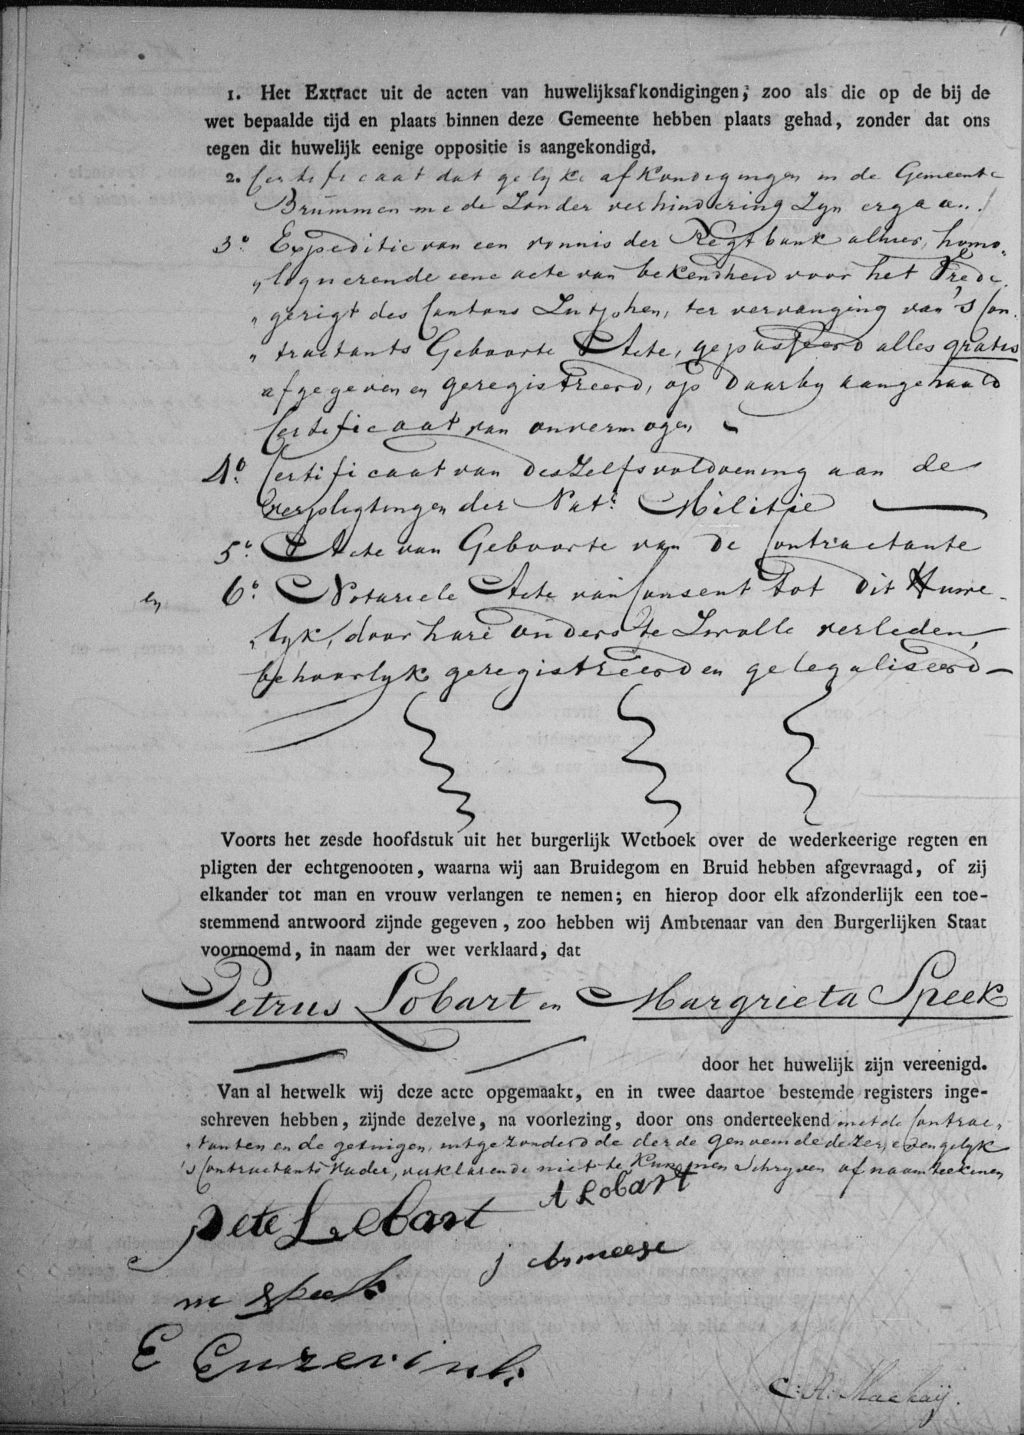 1. Het Extract uit de acten van huwelijksafkondigingen, zoo als die op de bij de
wet bepaalde tijd en plaats binnen deze Gemeente hebben plaats gehad, zonder dat ons
tegen dit huwelijk eenige oppositie is aangekondigd.
2. Certificaat dat gelyke afkondigingen in de Gemeente
Brummen mede Zonder verhindering Zyn ergaan.
3º Expeditie van een vonnis der Regtbank alhier, homo„
„loguerende eene acte van bekendheid voor het Vrede„
„gerigt des Cantons Zutphen, ter vervanging van 's Con„
„tractants Geboorte Acte, gepasseerd alles gratis
afgegeven en geregistreerd, op daarby aangehaald
Certificaat van onvermogen
4º. Certificaat van deszelfs voldoening aan de
verpligtingen der Natˡ. Militie
5º. Acte van Geboorte van de Contractante
en 6º. Notariele Acte van Consent tot dit Huwe„
„lyk, door hare ouders te Zwolle verleden,
behoorlyk geregistreerd en gelegaliseerd
Voorts het zesde hoofdstuk uit het burgerlijk Wetboek over de wederkeerige regten en
pligten der echtgenooten, waarna wij aan Bruidegom en Bruid hebben afgevraagd, of zij
elkander tot man en vrouw verlangen te nemen; en hierop door elk afzonderlijk een toe-
stemmend antwoord zijnde gegeven, zoo hebben wij Ambtenaar van den Burgerlijken Staat
voornoemd, in naam der wet verklaard, dat
Petrus Lobart en Margrieta Speek
door het huwelijk zijn vereenigd.
Van al hetwelk wij deze acte opgemaakt, en in twee daartoe bestemde registers inge-
schreven hebben, zijnde dezelve, na voorlezing, door ons onderteekend met de Contrac„
„tanten en de getuigen, uitgezonderd de derde genoemde dezer, even gelyk
's Contractants Vader, verklarende niet te kunnen Schryven of naamteekenen
Pete Lobart
A Lobart
j Armeese
m Speek
E Enzerink
C: A: Mackaij.